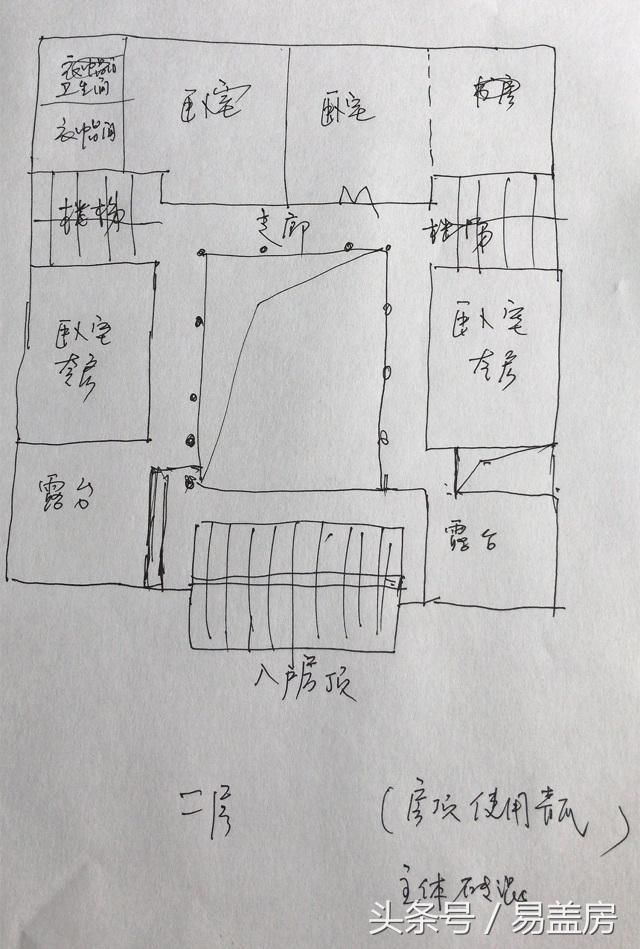 衣帽间
卫生间
卧室
卧室
书房
衣帽间
楼梯
走廊
楼梯
卧室
套房
卧室
套房
露台
露台
入户房顶
二层
(房顶使用青瓦)
主体砖混
头条号 / 易盖房